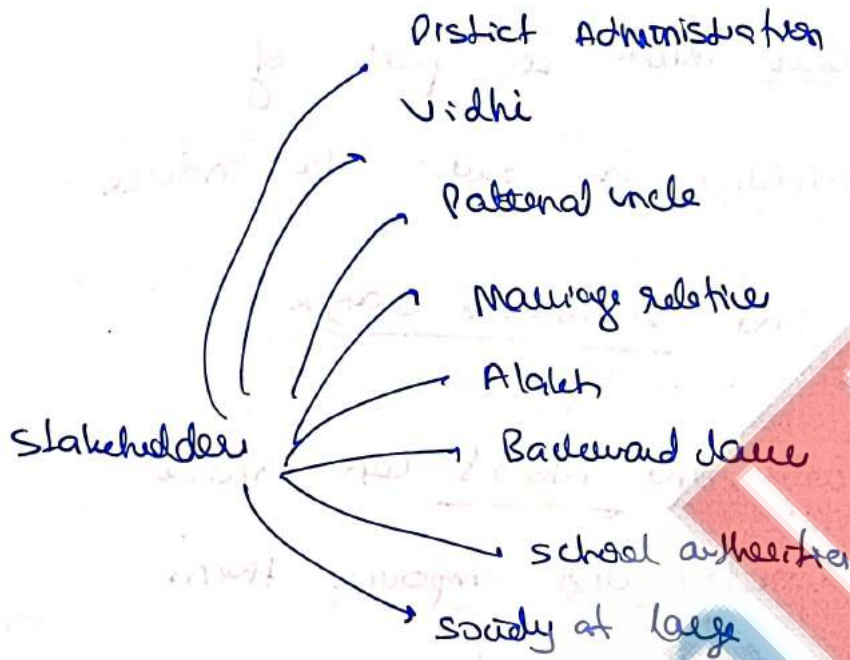 District Administration
Vidhi
Paternal uncle
Marriage relative
Alakh
Stakeholders
Backward classes
school authorities
society at large